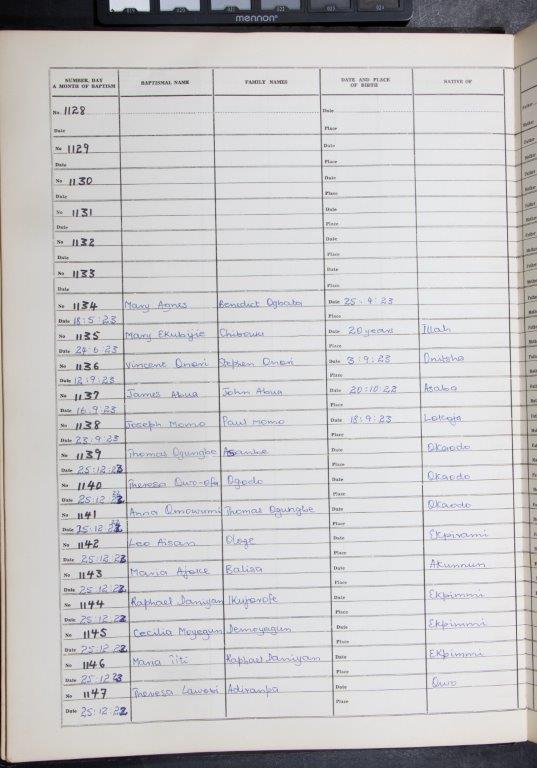 mennon
NUMBER, DAY & MONTH OF BAPTISM BAPTISMAL NAME FAMILY NAMES DATE AND PLACE OF BIRTH NATIVE OF
No 1128 Date
Date Place
No 1129 Date
Date Place
No 1130 Date
Date Place
No 1131 Date
Date Place
No 1132 Date
Date Place
No 1133 Date
Date Place
No 1134 Mary Agnes Benedict Ogbata Date 25 : 4 : 23
Date 18:5:23 Place
No 1135 Mary Ekubijie Date 20 years Illah
Date 24:6:23 Place
No 1136 Vincent Onori Stephen Onori Date 3:9:23 Onitsha
Date 12:9:23 Place
No 1137 James Abua John Abua Date 20:10:22 Asaba
Date 16.9.23 Place
No 1138 Joseph Momo Paul Momo Date 18:9:23 Lokoja
Date 23.9.23 Place
No 1139 Thomas Ogungbe Date Okaodo
Date 25:12: Place
No 1140 Theresa Owo-ofa Ogodo Date Okaodo
Date 25:12 Place
No 1141 Anna Omowumi Thomas Ogungbe Date Okaodo
Date 25.12 Place
No 1142 Leo Aisan Ologe Date
Date 25.12. Place
No 1143 Maria Ajoke Balisa Date Akunnun
Date 25.12. Place
No 1144 Raphael Daniyan Ikujorofe Date Ekpimmi
Date 25.12. Place
No 1145 Cecilia Moyegun Demoyegun Date Ekpimmi
Date 25.12. Place
No 1146 Maria Titi Raphael Daniyan Date Ekpimmi
Date 25.12 Place
No 1147 Theresa Lawobi Date Owo
Date 25.12. Place